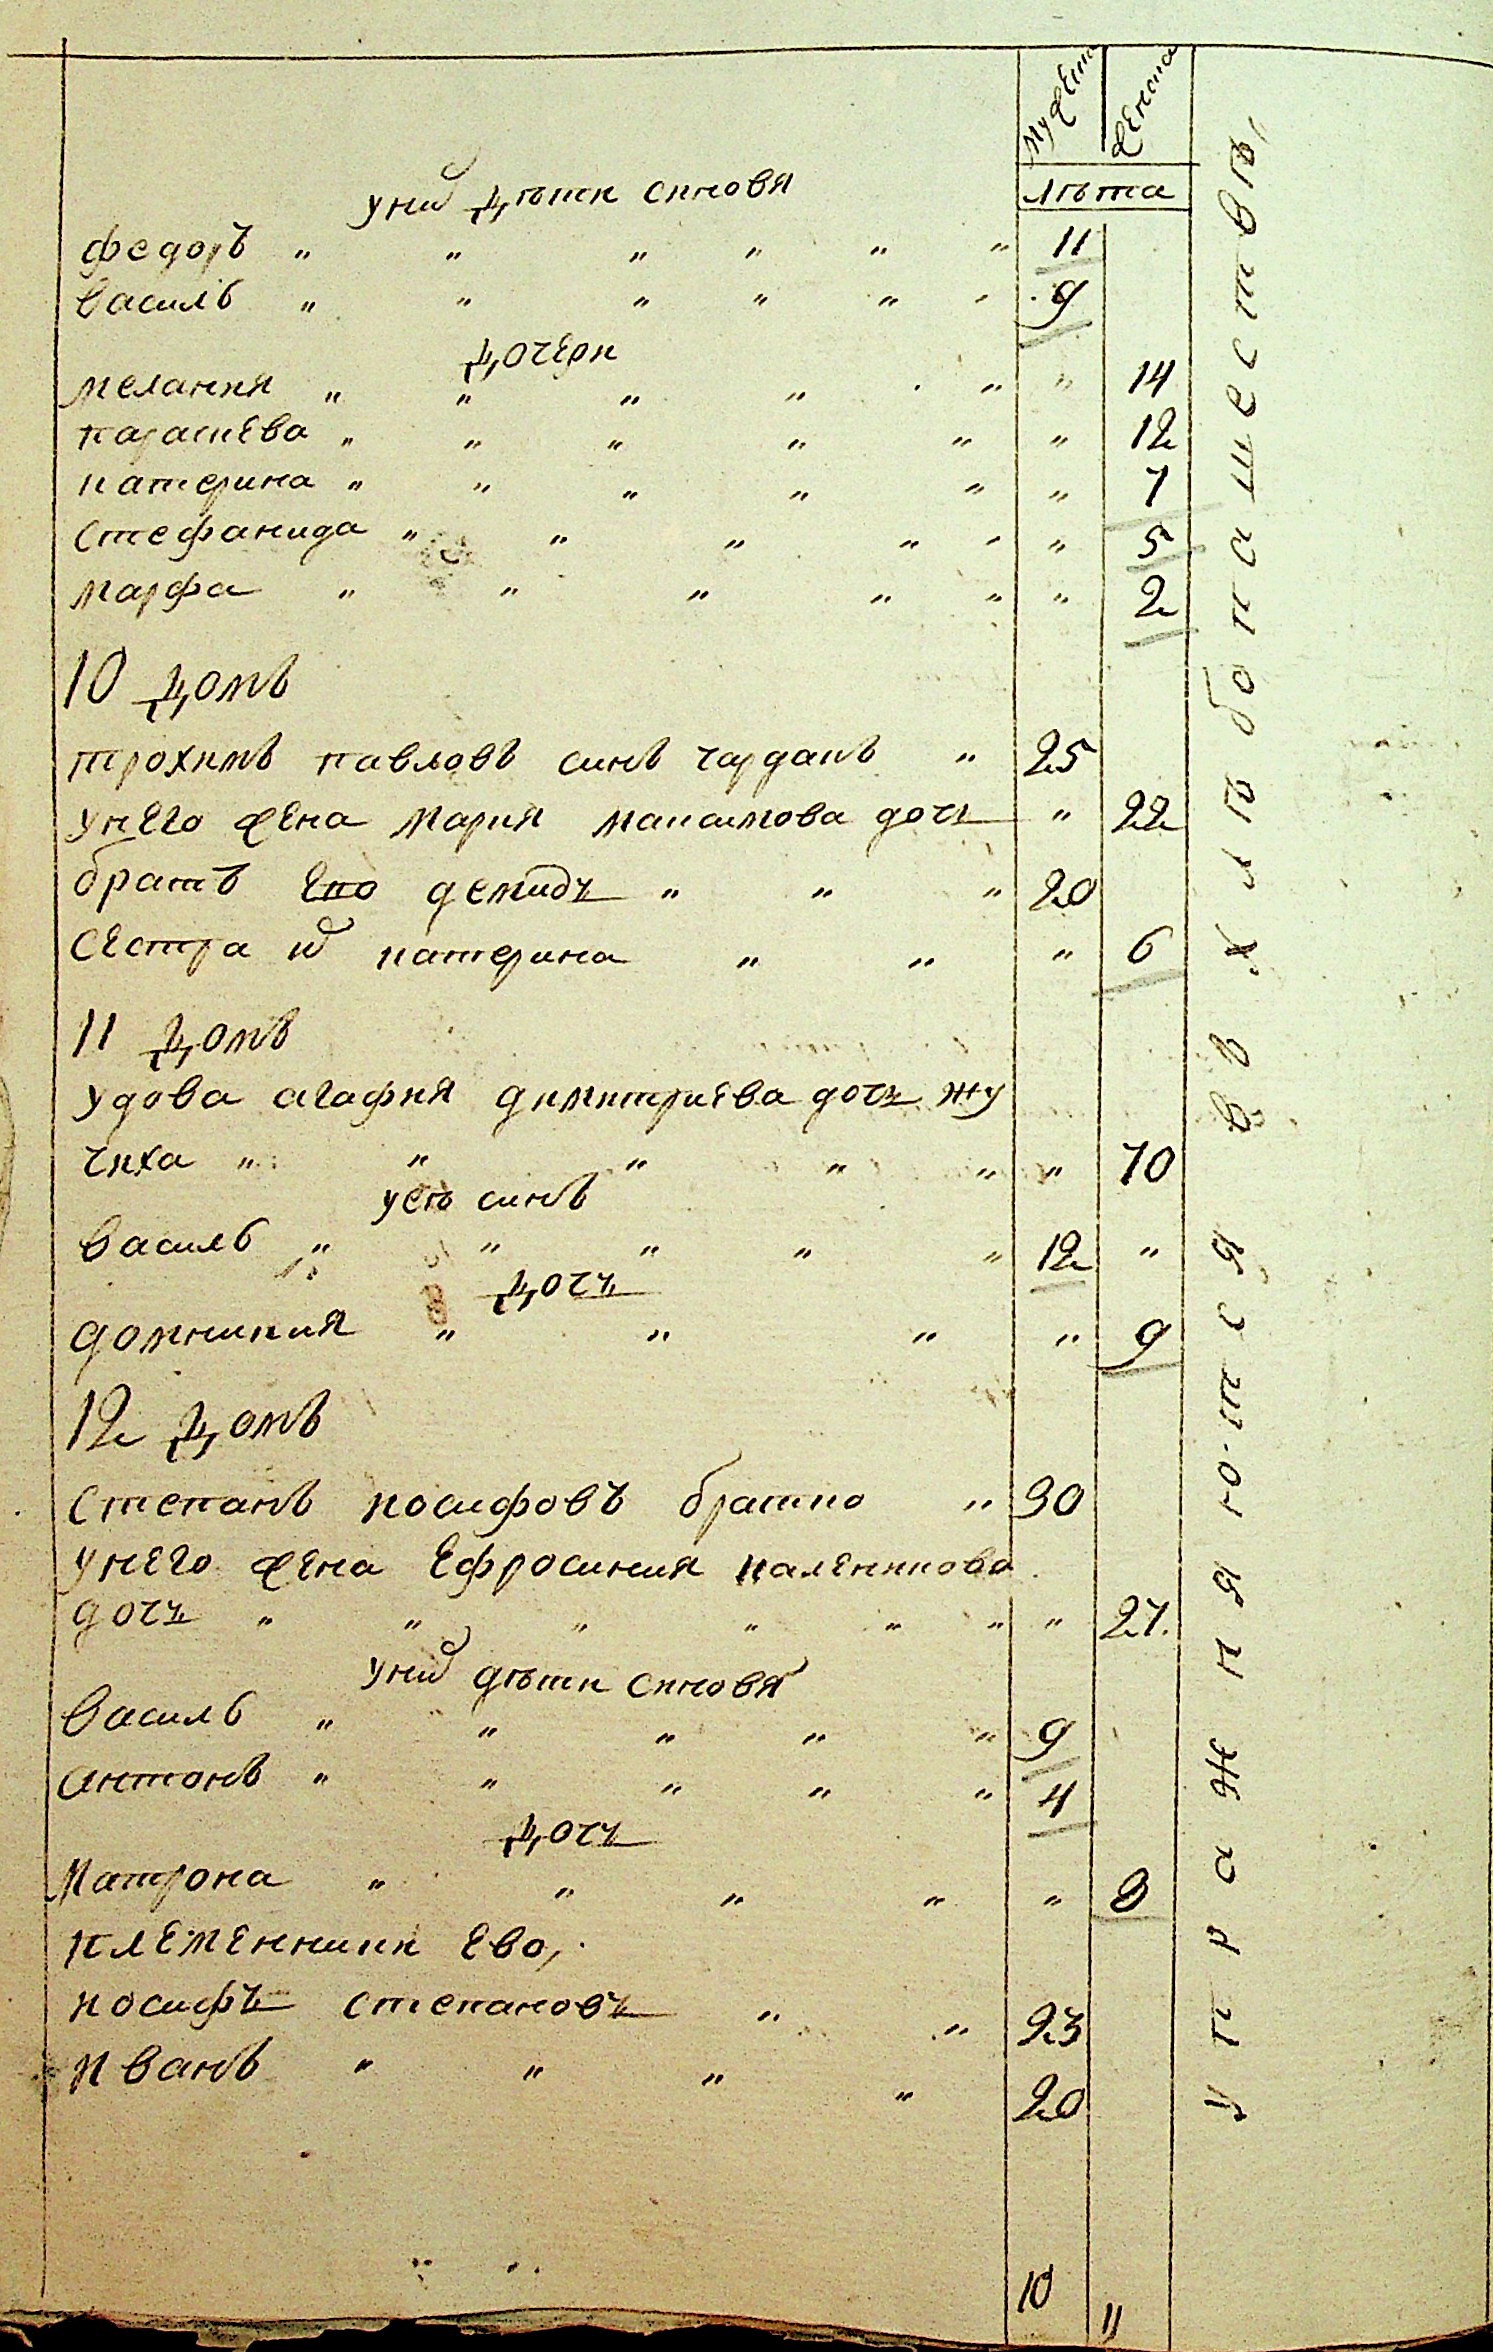 мужеска женска
лѣта
уних дѣти синовя
федоръ " " " " " " 11
василь " " " " " " 9
дочери
мелания " " " " " " 14
параскева " " " " " " 12
катерина " " " " " " 7
стефанида " " " " " " 5
марфа " " " " " " 2
10 домъ
трохимъ павловъ синъ чарданъ " 25
унего жена мария макасимова дочь " 22
братъ его демидъ " " " 20
сестра их катерина " " " 6
11 домъ
удова агафия димитриева дочь жу
чиха " " " " " " 70
уей синъ
василь " " " " " 12 "
дочь
домникия " " " " 9
12 домъ
степанъ иосифовъ братко " 30
унего жена ефросиния каленикова
дочь " " " " " " " 27.
уних дѣти синовя
василь " " " " " 9
антонъ " " " " " 4
дочь
матрона " " " " " 8
племенники ево,
иосифъ степановъ " " 23
иванъ " " " " 20
10 11
упражнаются в хлѣбопашествѣ